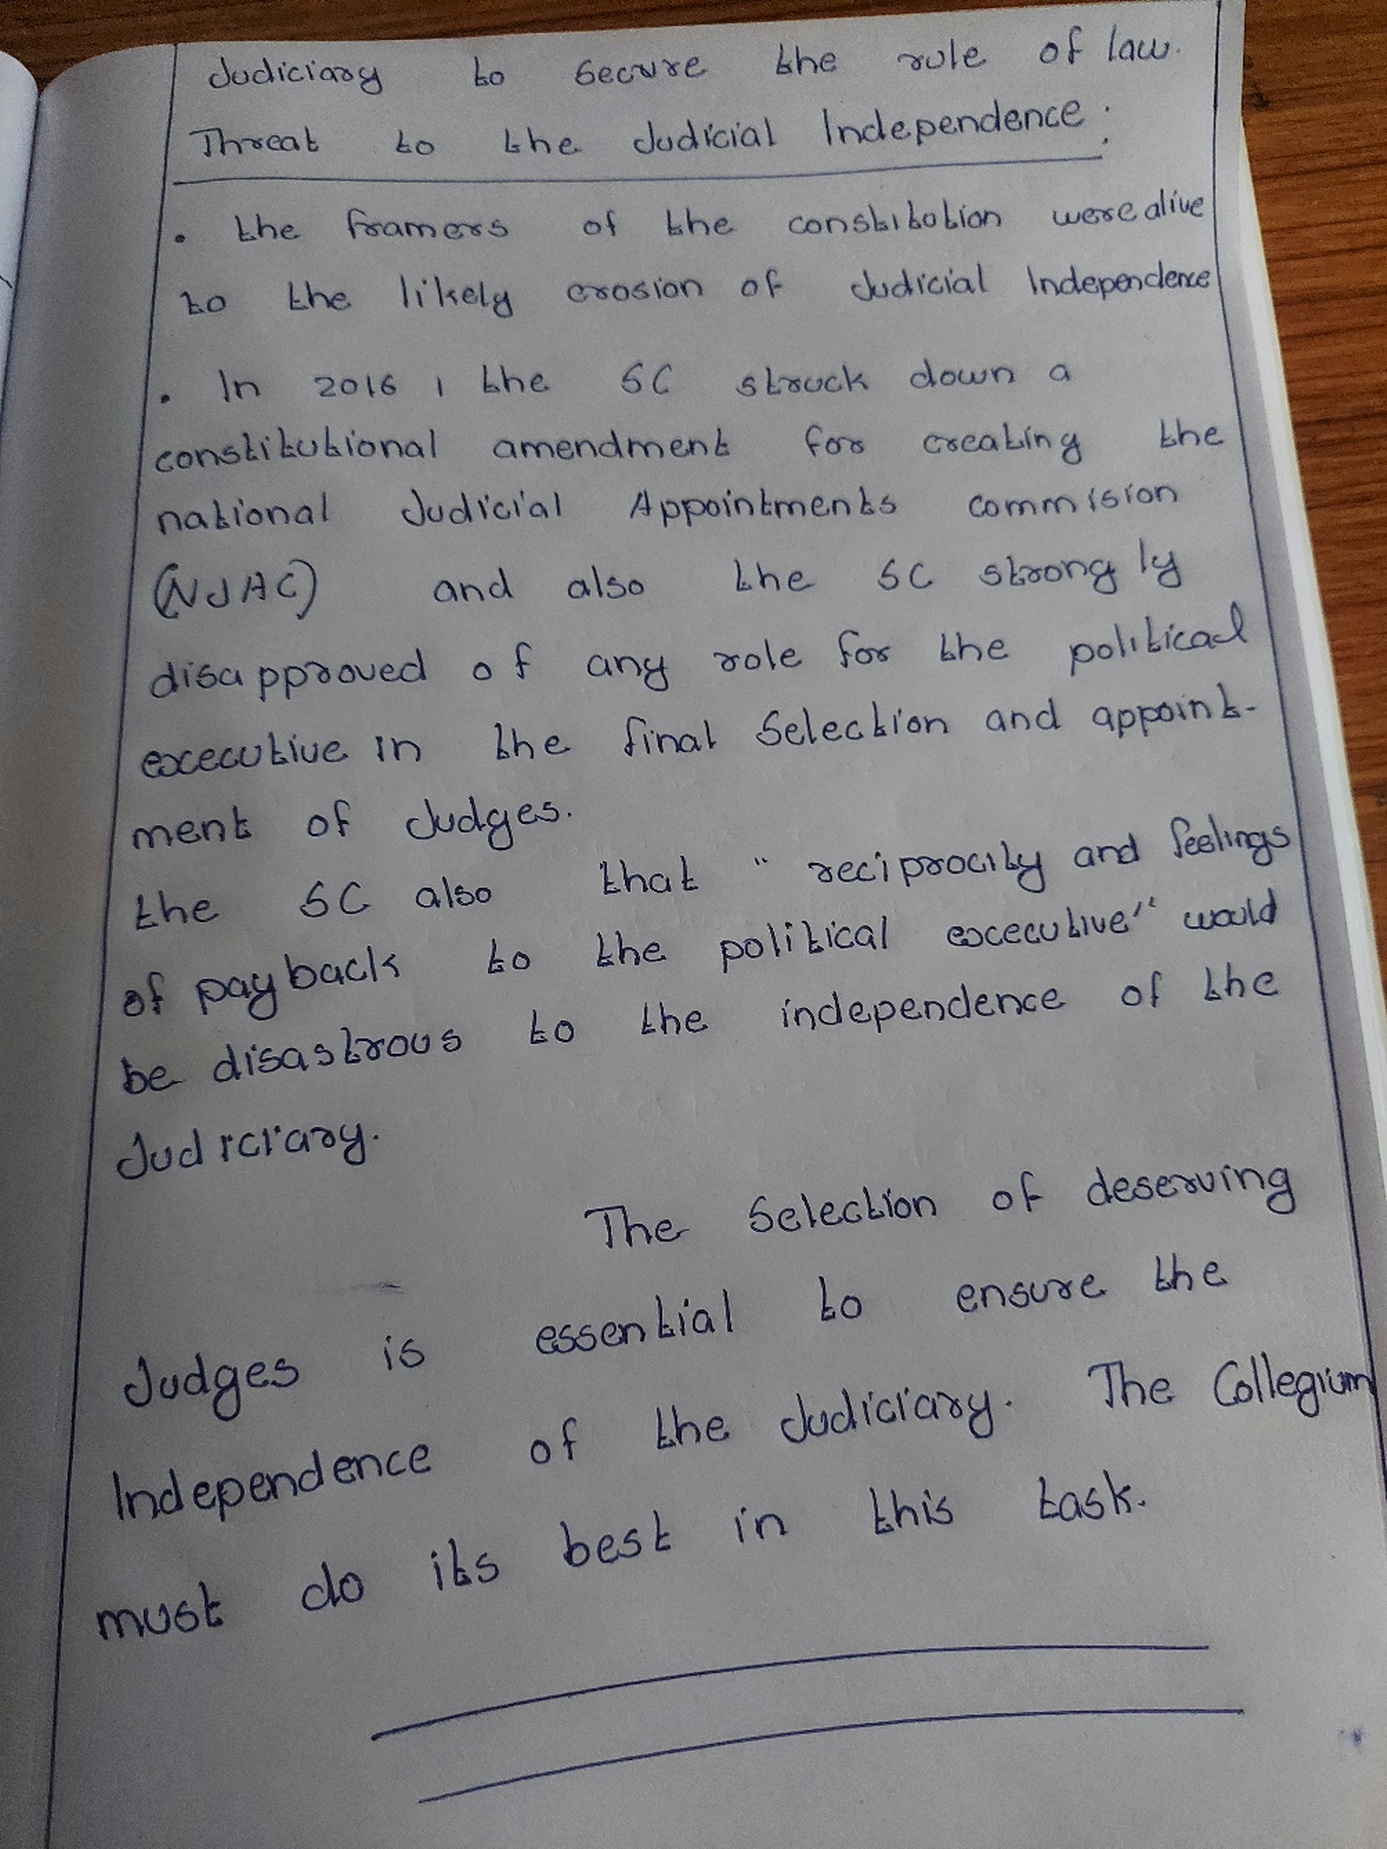 Judiciary to secure the rule of law.
Threat to the Judicial Independence:
• the framers of the constitution were alive
to the likely erosion of Judicial Independence
• In 2016, the SC struck down a
constitutional amendment for creating the
national Judicial Appointments commision
(NJAC) and also the SC strongly
disapproved of any role for the political
executive in the final Selection and appoint-
ment of Judges.
the SC also that "reciprocity and feelings
of payback to the political executive" would
be disastrous to the independence of the
Judiciary.
The Selection of deserving
Judges is essential to ensure the
Independence of the Judiciary. The Collegium
must do its best in this task.